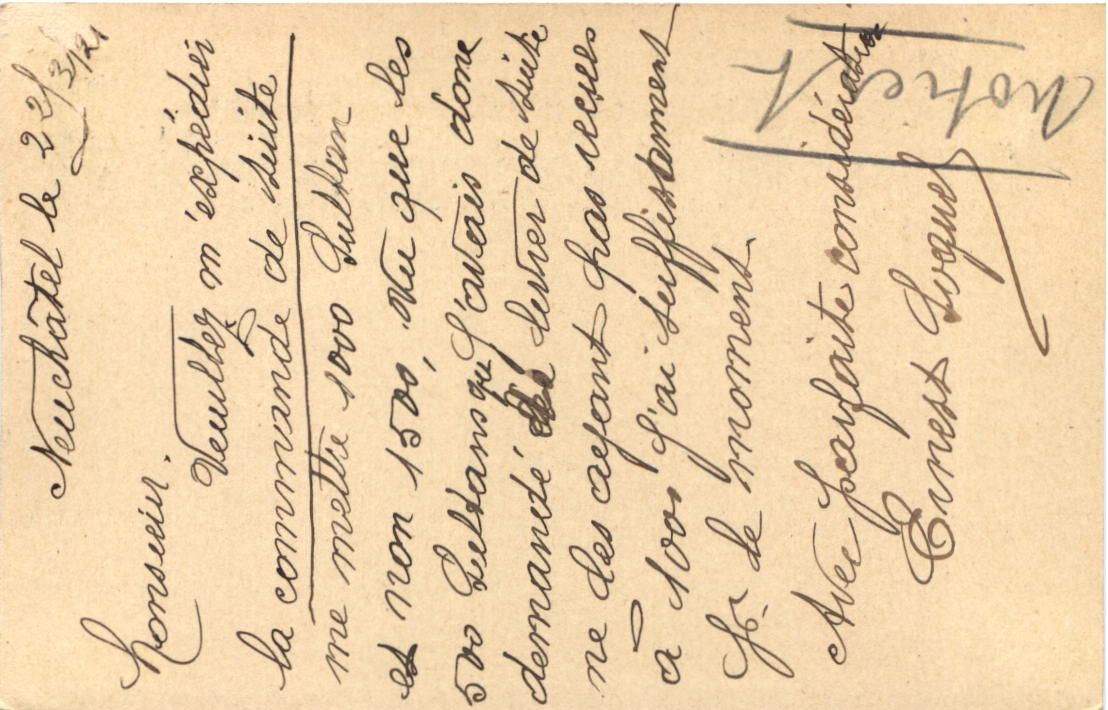 Neuchâtel le 22/3/21
Monsieur.
Veuillez m'expédier
la commande de suite
me mettre 1000 Sultan
et non 1500, Vu que les
500 Sultans que j'avais donc
demandé de suite
ne les ayant pas reçues
à 1000 j'ai suffisament
pr. le moment.
Avec parfaite considération
Ernest
noté